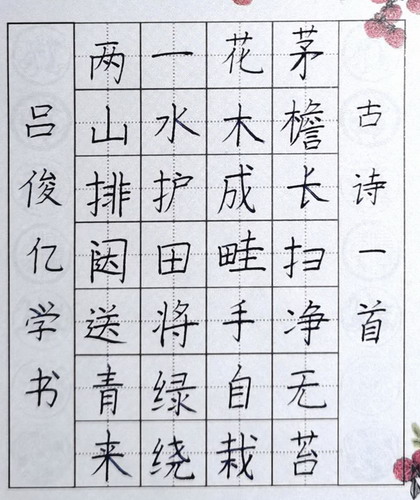 古诗一首
茅檐长扫净无苔
花木成畦手自栽
一水护田将绿绕
两山排闼送青来
吕俊亿学书